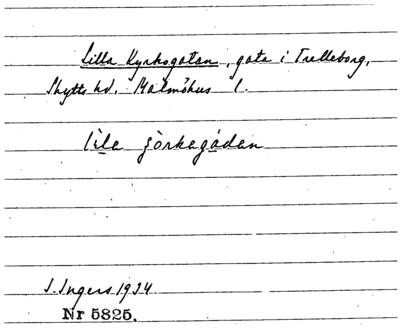 Lilla Kyrkogatan, gata i Trelleborg,
Skytts hd. Malmöhus l.
lìla çòrkegádan
I. Ingers 1934.
Nr 5825.